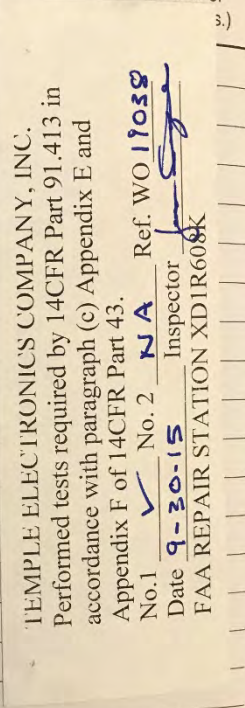 s.)
TEMPLE ELECTRONICS COMPANY, INC.
Performed tests required by 14CFR Part 91.413 in
accordance with paragraph (c) Appendix E and
Appendix F of 14CFR Part 43.
No.1 ✓ No. 2 NA Ref. WO 19038
Date 9-30-15 Inspector
FAA REPAIR STATION XD1R608K